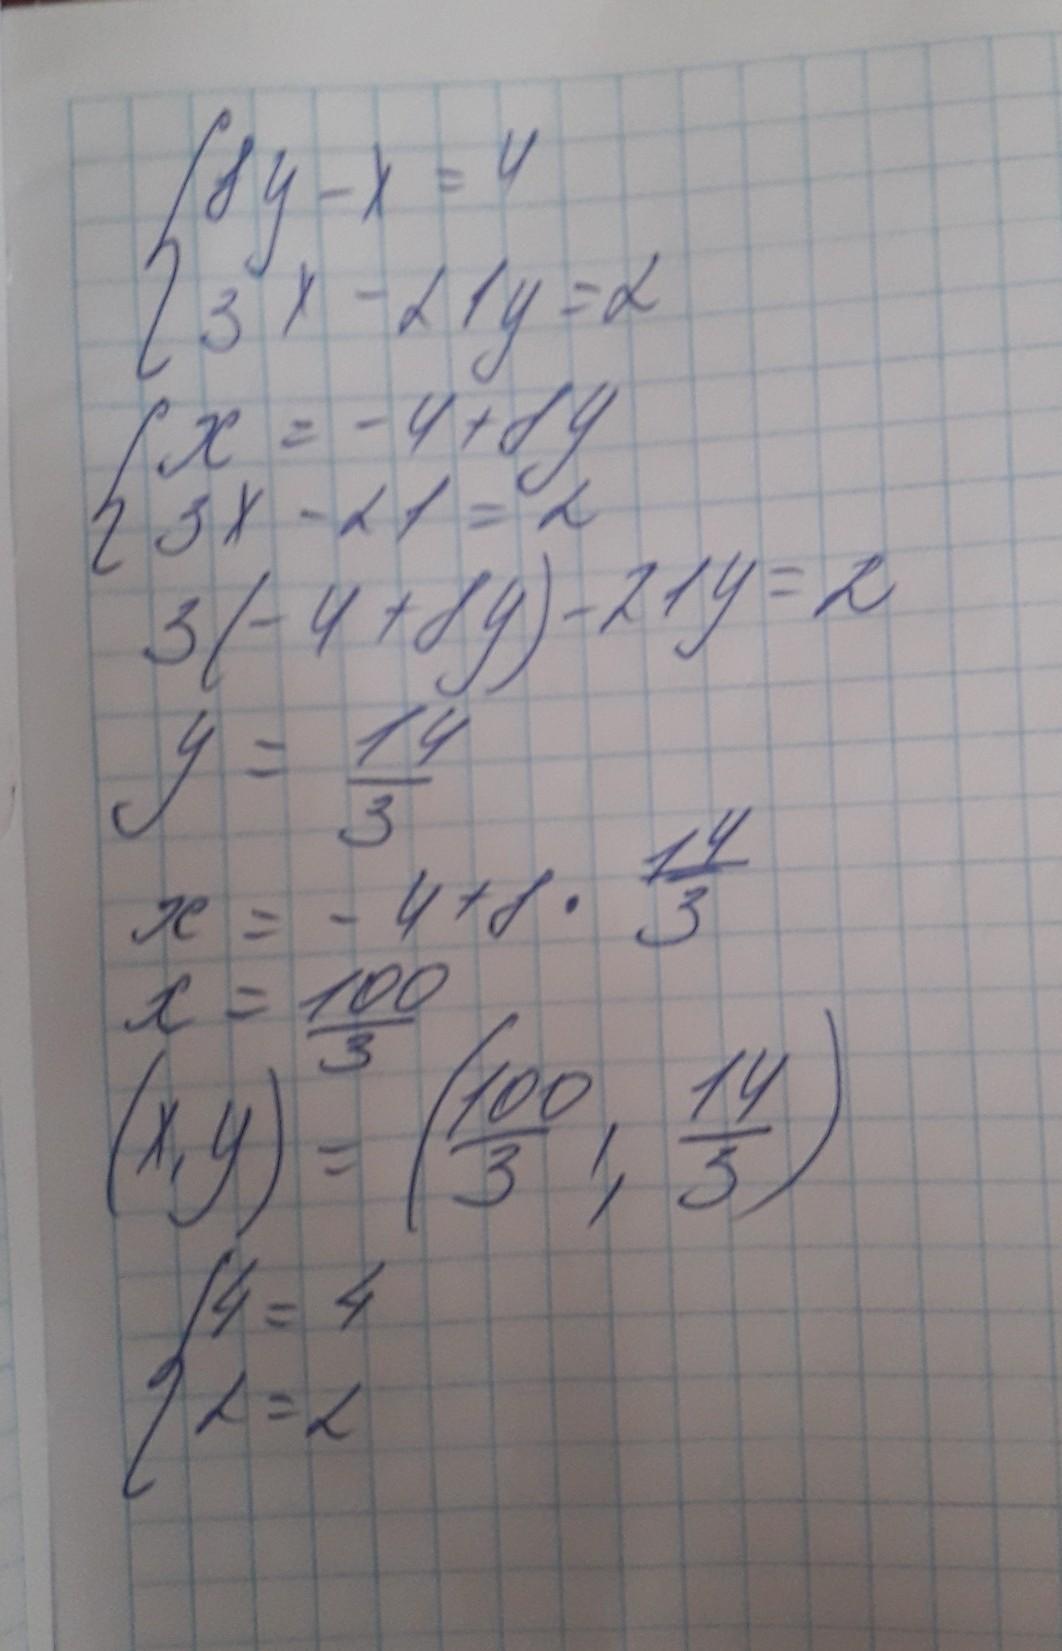 {8y - x = 4
{3x - 21y = 2
{x = -4 + 8y
{3x - 21 = 2
3(-4 + 8y) - 21y = 2
y = 14/3
x = -4 + 8 · 14/3
x = 100/3
(x, y) = (100/3, 14/3)
{4 = 4
{2 = 2